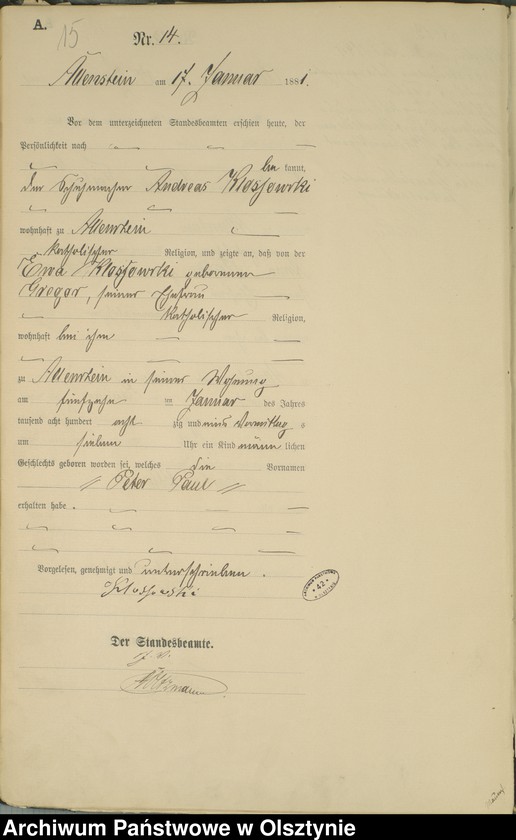 A.
15
Nr. 14.
Allenstein am 17. Januar 1881.
Vor dem unterzeichneten Standesbeamten erschien heute, der
Persönlichkeit nach
be kannt,
der Schuhmacher Andreas Klossowski
wohnhaft zu Allenstein
katholischer Religion, und zeigte an, daß von der
Ewa Klossowski geborenen
Gregor, seiner Ehefrau
katholischer Religion,
wohnhaft bei ihm
zu Allenstein in seiner Wohnung
am fünfzehn ten Januar des Jahres
tausend acht hundert acht zig und eins Vormittag s
um sieben Uhr ein Kind männ lichen
Geschlechts geboren worden sei, welches die Vornamen
Peter Paul
erhalten habe.
Vorgelesen, genehmigt und unterschrieben.
Klossowski
Der Standesbeamte.
42
Archiwum Państwowe w Olsztynie